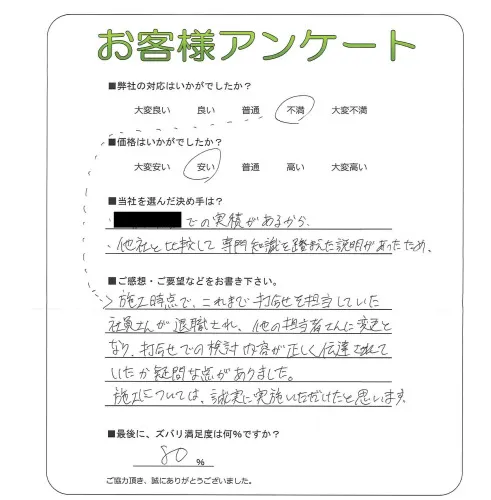 お客様アンケート
■弊社の対応はいかがでしたか？
大変良い 良い 普通 不満 大変不満
■価格はいかがでしたか？
大変安い 安い 普通 高い 大変高い
■当社を選んだ決め手は？
・での実積があるから、
・他社と比較して専門知識を踏まえた説明があったため、
■ご感想・ご要望などをお書き下さい。
施工時点で、これまで打合せを担当していた
社員さんが退職され、他の担当者さんに変更と
なり、打合せでの検討内容が正しく伝達されて
いたか疑問な点がありました。
施工については、誠実に実施いただけたと思います。
■最後に、ズバリ満足度は何%ですか？
80 %
ご協力頂き、誠にありがとうございました。